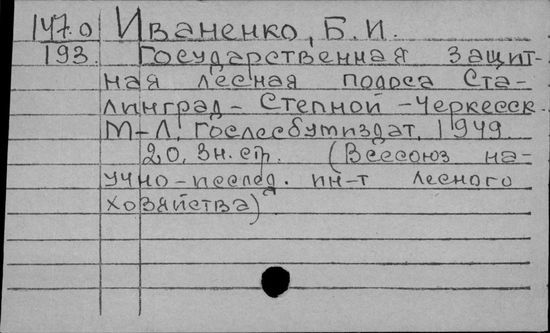 147.0 Иваненко, Б. И.
193. Государственная защит-
ная лесная полоса Ста-
линград - Степной - Черкесск.
М-Л, Гослесбумиздат, 1949.
20, 3н. стр. (Всесоюз на-
учно-исслед. ин-т лесного
хозяйства)